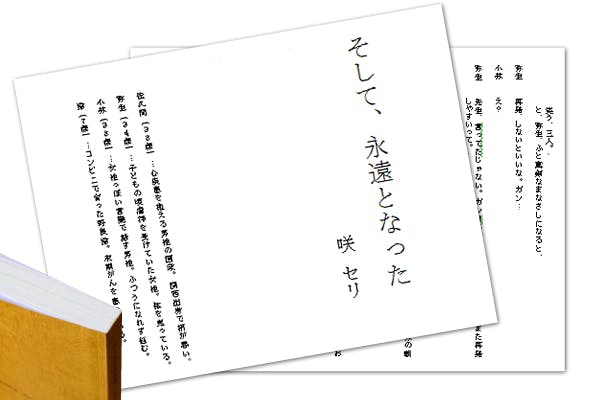 そして、永遠となった
咲 セリ
佐久間（33歳）…心疾患を抱える男性の 関西出身で柄が悪い。
弥生（34歳）…子どもの頃虐待を受けていた女性。体を売っている。
小林（33歳）…女性っぽい言葉で話す男性。ふつうになれず悩む。
（7歳）…コンビニで育った野良猫。末期がんを
笑う、三人。
と、弥生、ふと真剣なまなざしになると、
弥生 再発、しないといいな。ガン…
小林 え？
弥生 先生、言ってたじゃない。ガン また再発
しやすいって。